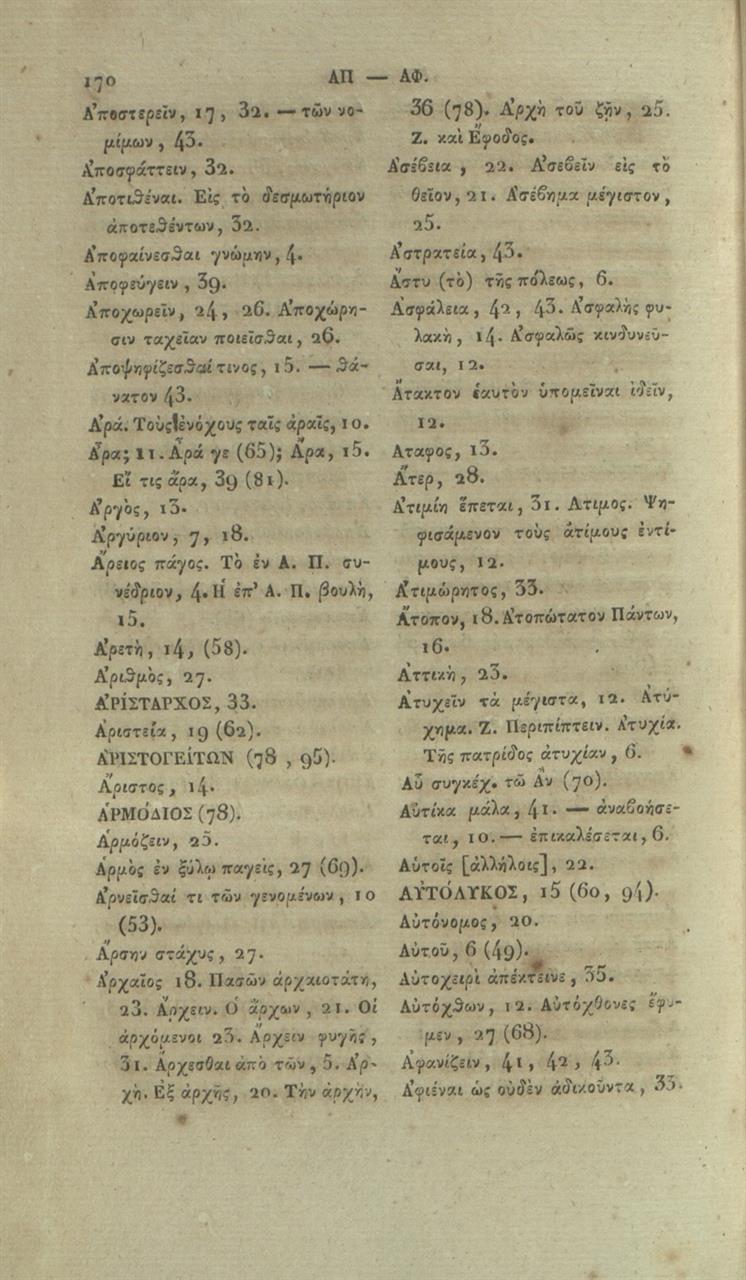 170
ΑΠ — ΑΦ.
Ἀποστερεῖν, 17, 32. — τῶν νο-
μίμων, 43.
Ἀποσφάττειν, 32.
Ἀποτιθέναι. Εἰς τὸ δεσμωτήριον
ἀποτεθέντων, 32.
Ἀποφαίνεσθαι γνώμην, 4.
Ἀποφεύγειν, 39.
Ἀποχωρεῖν, 24, 26. Ἀποχώρη-
σιν ταχεῖαν ποιεῖσθαι, 26.
Ἀποψηφίζεσθαί τινος, 15. — θά-
νατον 43.
Ἀρά. Τοὺς ἐνόχους ταῖς ἀραῖς, 10.
Ἆρα; 11. Ἆρά γε (65); Ἄρα, 15.
Εἴ τις ἄρα, 39 (81).
Ἀργὸς, 13.
Ἀργύριον, 7, 18.
Ἄρειος πάγος. Τὸ ἐν Α. Π. συ-
νέδριον, 4. Ἡ ἐπ' Α. Π. βουλὴ,
15.
Ἀρετὴ, 14, (58).
Ἀριθμὸς, 27.
ἈΡΊΣΤΑΡΧΟΣ, 33.
Ἀριστεία, 19 (62).
ἈΡΙΣΤΟΓΕΊΤΩΝ (78, 95).
Ἄριστος, 14.
ἉΡΜΌΔΙΟΣ (78).
Ἁρμόζειν, 25.
Ἁρμὸς ἐν ξύλῳ παγεὶς, 27 (69).
Ἀρνεῖσθαί τι τῶν γενομένων, 10
(53).
Ἄρσην στάχυς, 27.
Ἀρχαῖος 18. Πασῶν ἀρχαιοτάτη,
23. Ἄρχειν. Ὁ ἄρχων, 21. Οἱ
ἀρχόμενοι 23. Ἄρχειν φυγῆς,
31. Ἄρχεσθαι ἀπὸ τῶν, 5. Ἀρ-
χὴ. Ἐξ ἀρχῆς, 20. Τὴν ἀρχὴν,
36 (78). Ἀρχὴ τοῦ ζῇν, 25.
Ζ. καὶ Ἔφοδος.
Ἀσέβεια, 22. Ἀσεβεῖν εἰς τὸ
θεῖον, 21. Ἀσέβημα μέγιστον,
25.
Ἀστρατεία, 43.
Ἄστυ (τὸ) τῆς πόλεως, 6.
Ἀσφάλεια, 42, 43. Ἀσφαλὴς φυ-
λακὴ, 14. Ἀσφαλῶς κινδυνεῦ-
σαι, 12.
Ἄτακτον ἑαυτὸν ὑπομεῖναι ἰδεῖν,
12.
Αταφος, 13.
Ἄτερ, 28.
Ἀτιμίη ἕπεται, 31. Ατιμος. Ψη-
φισάμενον τοὺς ἀτίμους ἐντί-
μους, 12.
Ἀτιμώρητος, 33.
Ἄτοπον, 18. Ἀτοπώτατον Πάντων,
16.
Ἀττικὴ, 23.
Ἀτυχεῖν τὰ μέγιστα, 12. Ἀτύ-
χημα. Ζ. Περιπίπτειν. Ἀτυχία.
Τῆς πατρίδος ἀτυχίαν, 6.
Αὖ συγκέχ. τῶ Ἂν (70).
Αὐτίκα μάλα, 41. — ἀναβοήσε-
ται, 10. — ἐπικαλέσεται, 6.
Αὑτοῖς [ἀλλήλοις], 22.
ΑΥ̓ΤΌΛΥΚΟΣ, 15 (60, 94).
Αὐτόνομος, 20.
Αὐτοῦ, 6 (49).
Αὐτοχειρὶ ἀπέκτεινε, 35.
Αὐτόχθων, 12. Αὐτόχθονες ἔφυ-
μεν, 27 (68).
Ἀφανίζειν, 41, 42, 43.
Ἀφιέναι ὡς οὐδὲν ἀδικοῦντα, 33.